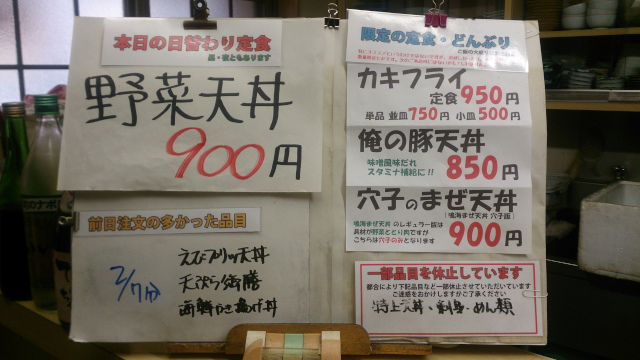 本日の日替わり定食
昼・夜ともあります
野菜天丼
900円
前日注文の多かった品目
2/7分
えびプリッ天丼
海鮮かき揚げ丼
限定の定食・どんぶり
カキフライ
定食 950円
単品 並皿750円 小皿500円
俺の豚天丼
味噌風味だれ
スタミナ補給に!!
850円
穴子のまぜ天丼
(鳴海まぜ天丼 穴子版)
鳴海まぜ天丼 のレギュラー版は
具材が野菜ととり肉ですが
こちらは穴子のみとなります
900円
一部品目を休止しています
都合により下記品目など一部休止させていただいています
ご迷惑をおかけしますがご了承ください
特上天丼・刺身・めん類